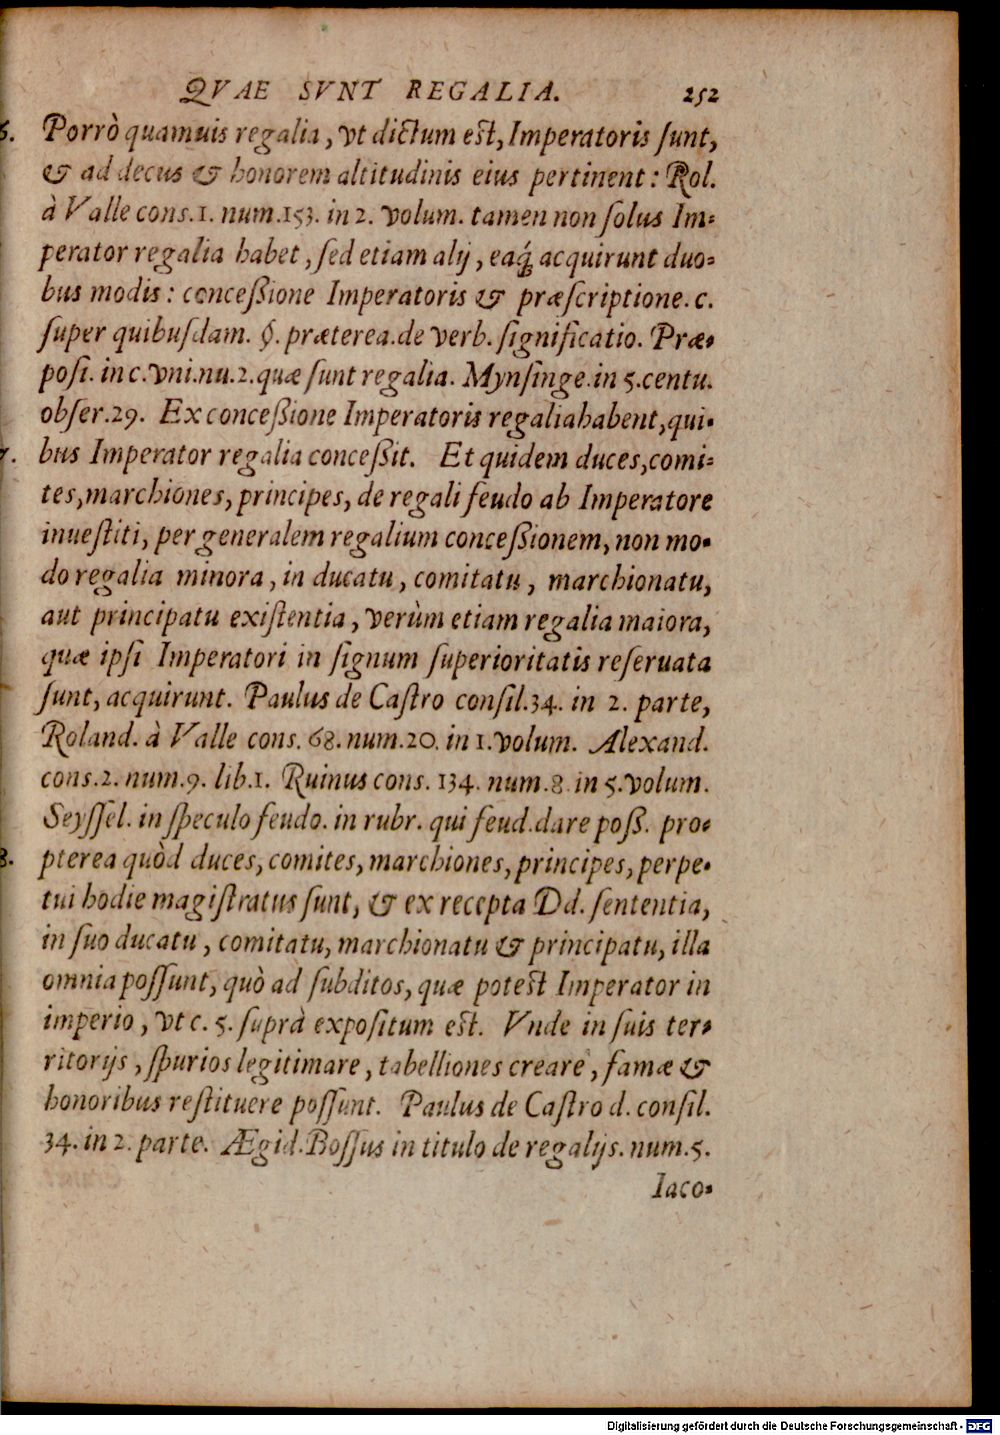 QVAE SVNT REGALIA. 252
6. Porrò quamuis regalia, vt dictum est, Imperatoris ſunt,
& ad decus & honorem altitudinis eius pertinent: Rol.
à Valle cons.1. num.153. in 2. volum. tamen non ſolus Im-
perator regalia habet, ſed etiam alij, eaq́; acquirunt duo-
bus modis: conceßione Imperatoris & præſcriptione. c.
ſuper quibuſdam. §. præterea. de verb. ſignificatio. Præ-
poſi. in c. vni. nu.2. quæ ſunt regalia. Mynſinge. in 5. centu.
obſer.29. Ex conceßione Imperatoris regalia habent, qui-
7. bus Imperator regalia conceßit. Et quidem duces, comi-
tes, marchiones, principes, de regali feudo ab Imperatore
inueſtiti, per generalem regalium conceßionem, non mo-
do regalia minora, in ducatu, comitatu, marchionatu,
aut principatu exiſtentia, verùm etiam regalia maiora,
quæ ipſi Imperatori in ſignum ſuperioritatis reſeruata
ſunt, acquirunt. Paulus de Caſtro conſil.34. in 2. parte,
Roland. à Valle cons. 68. num.20. in 1. volum. Alexand.
cons.2. num.9. lib.1. Ruinus cons. 134. num.8. in 5. volum.
Seyſſel. in ſpeculo feudo. in rubr. qui feud. dare poß. pro-
8. pterea quòd duces, comites, marchiones, principes, perpe-
tui hodie magiſtratus ſunt, & ex recepta Dd. ſententia,
in ſuo ducatu, comitatu, marchionatu & principatu, illa
omnia poſſunt, quò ad ſubditos, quæ potest Imperator in
imperio, vt c. 5. ſuprà expoſitum est. Vnde in ſuis ter-
ritorijs, ſpurios legitimare, tabelliones creare, famæ &
honoribus reſtituere poſſunt. Paulus de Caſtro d. conſil.
34. in 2. parte. Ægid. Boſſus in titulo de regalijs. num.5.
Iaco-
Digitalisierung gefördert durch die Deutsche Forschungsgemeinschaft - DFG